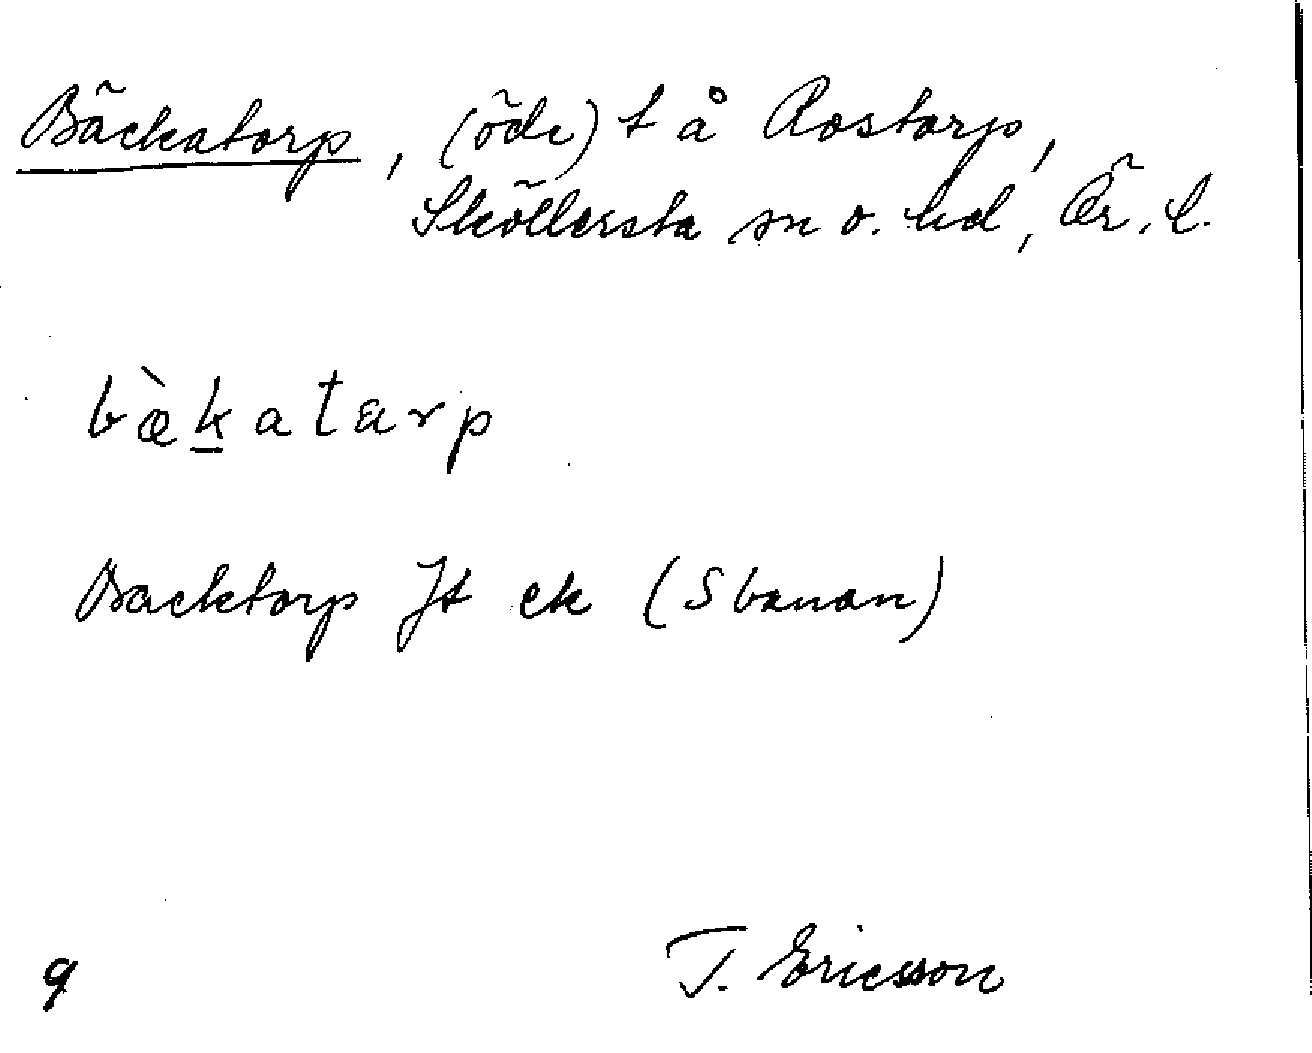 Bäckatorp, (öde) t å Rostorp,
Sköllersta sn o. hd, Ör. l.
bæ̀k̲atarp
Backtorp Jt ek (S banan)
9 T. Ericsson